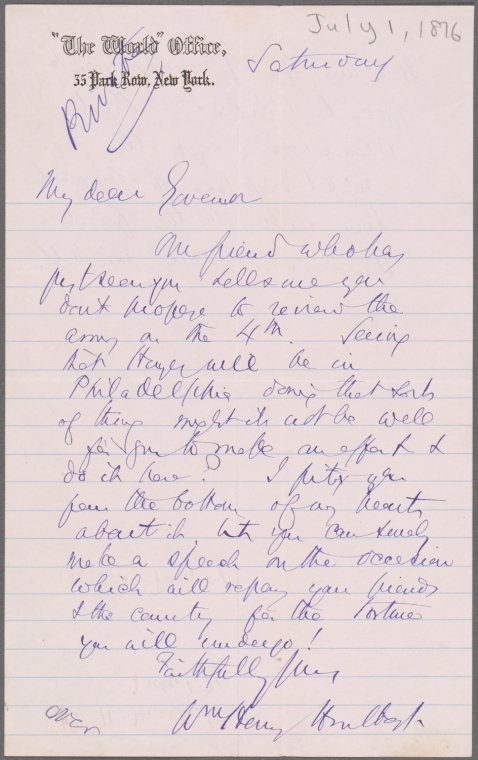 July 1, 1876
"The World" Office,
35 Park Row, New York.
Saturday
Private
My dear Governor
My friend who has
just seen you tells me you
don't propose to review the
army on the 4th. Seeing
that Hayes will be in
Philadelphia doing that sort
of thing might it not be well
for you to make an effort &
do it here? I pity you
from the bottom of my heart
about it but you can surely
make a speech on the occasion
which will repay your friends
& the country for the torture
you will undergo!
Faithfully yours
Wm Henry Hurlbert
over